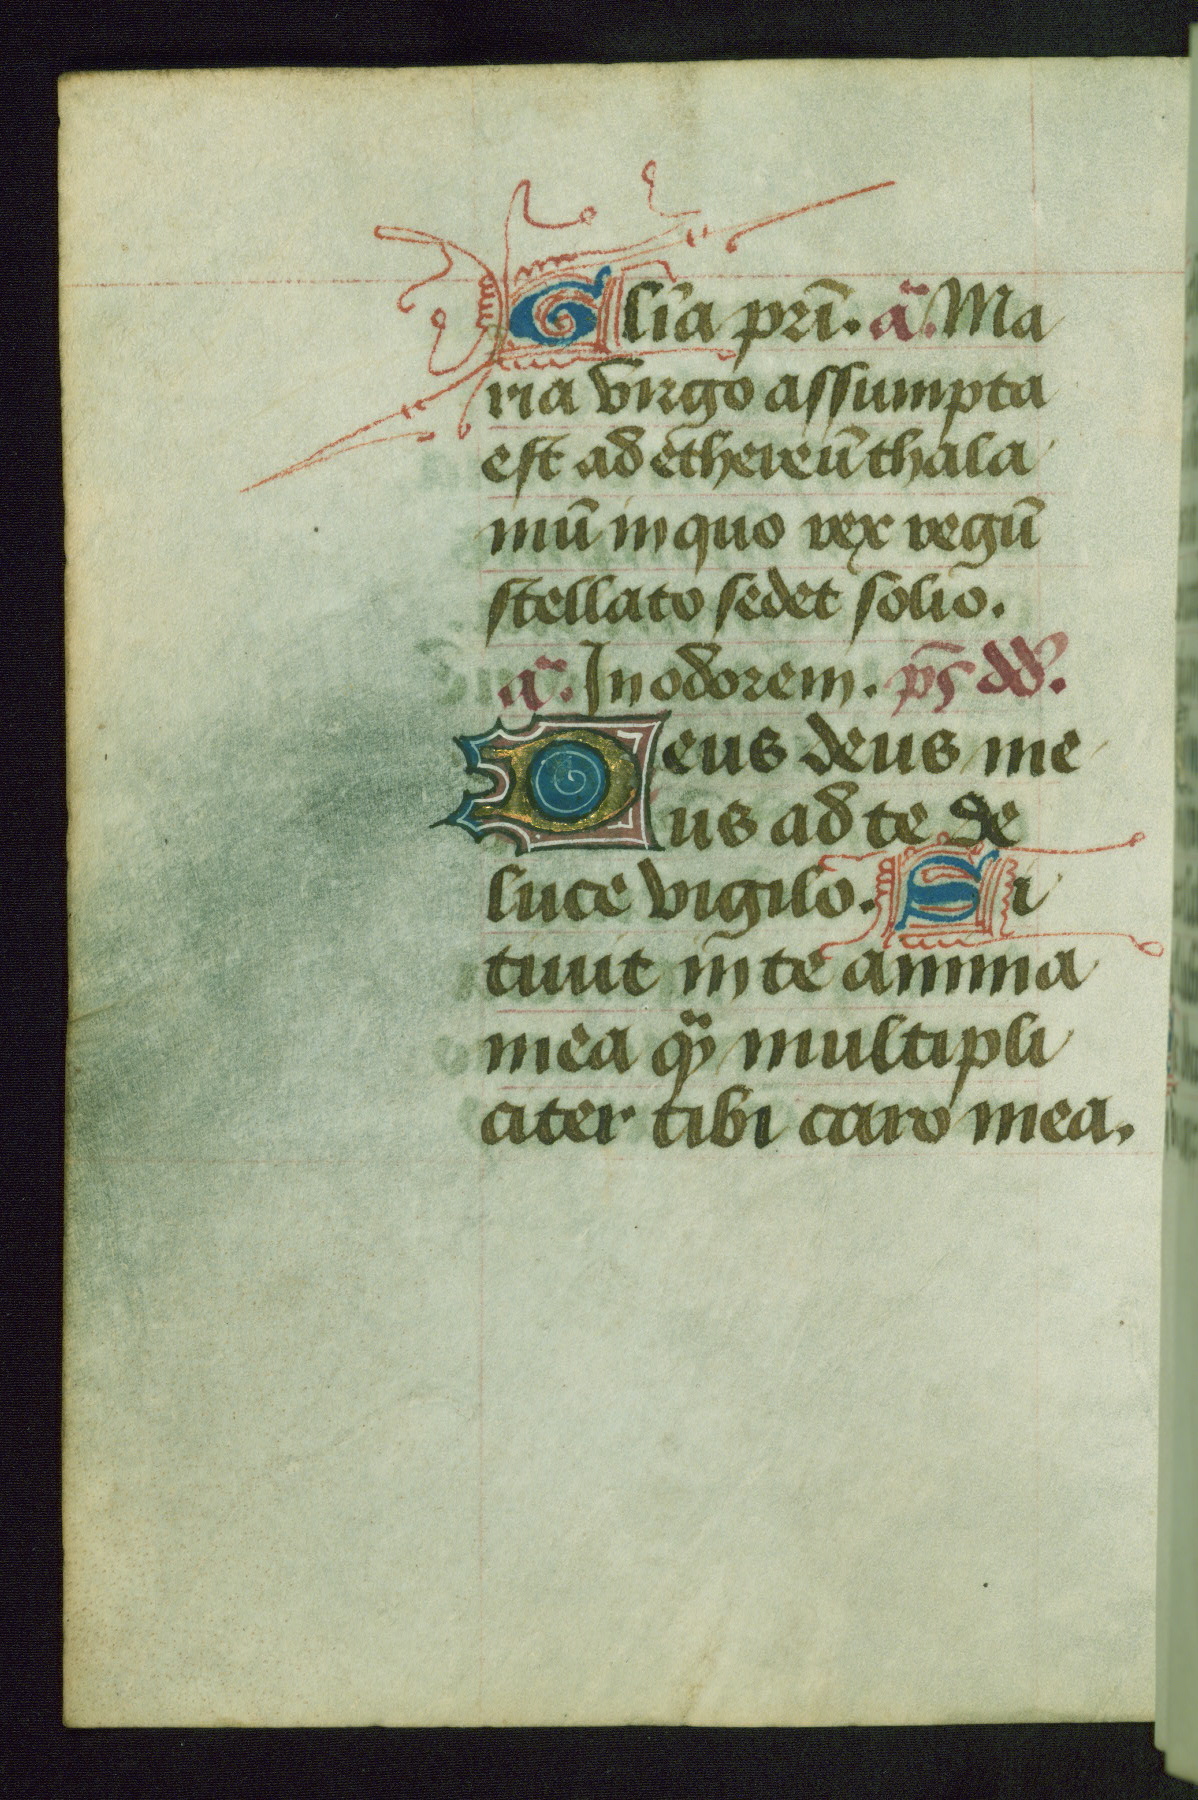 Gl̄ia pr̄i. aͣ. Ma
ria virgo assumpta
est ad ethereū thala
mū in quo rex regū
stellato sedet solio.
aͣ. In odorem. p̄s dd̄.
Deus deus me
us ad te de
luce vigilo. Si
tiuit in te anima
mea qͣ̄ multipli
citer tibi caro mea.